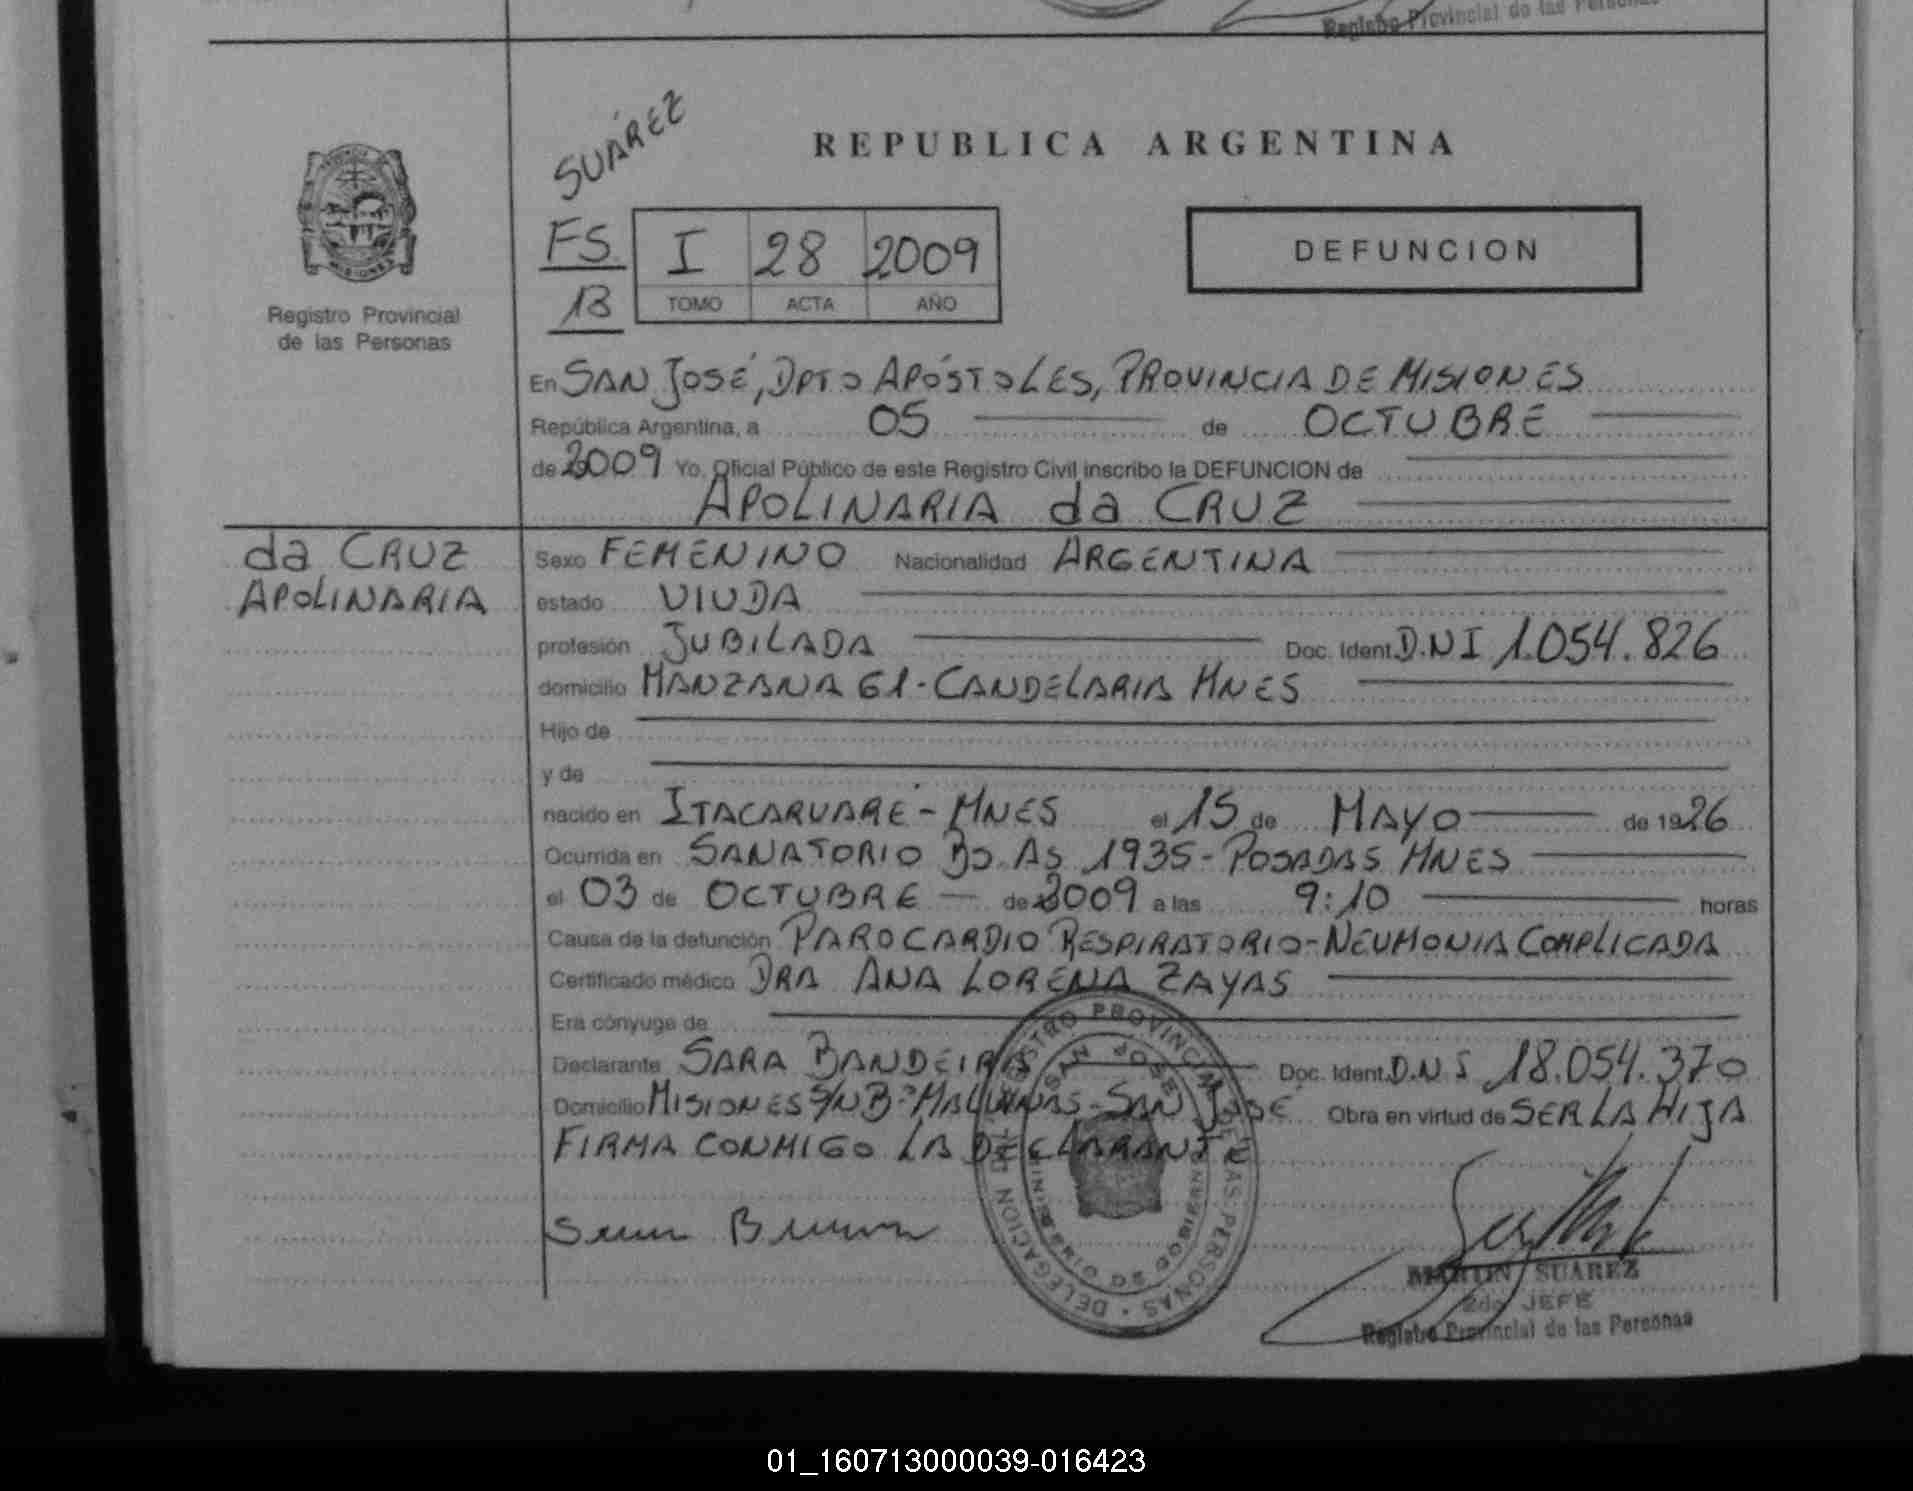 Registro Provincial de las Personas
SUÁREZ
REPUBLICA ARGENTINA
FS. 13
I 28 2009
TOMO ACTA AÑO
DEFUNCION
PROVINCIA
MISIONES
Registro Provincial
de las Personas
En SAN JOSÉ, DPTO APÓSTOLES, PROVINCIA DE MISIONES
República Argentina, a 05 de OCTUBRE
de 2009 Yo, Oficial Público de este Registro Civil inscribo la DEFUNCION de
APOLINARIA da CRUZ
da CRUZ
APOLINARIA
Sexo FEMENINO Nacionalidad ARGENTINA
estado VIUDA
profesión JUBILADA Doc. Ident. D.N I 1.054.826
domicilio MANZANA 61 - CANDELARIA MNES
Hijo de
y de
nacido en ITACARUARÉ - MNES el 15 de MAYO de 1926
Ocurrida en SANATORIO BS. AS 1935 - POSADAS MNES
el 03 de OCTUBRE de 2009 a las 9:10 horas
Causa de la defunción PAROCARDIO RESPIRATORIO - NEUMONIA COMPLICADA
Certificado médico DRA ANA LORENA ZAYAS
Era cónyuge de
Declarante SARA BANDEIRA Doc. Ident. D.N I 18.054.370
Domicilio MISIONES S/N Bº MALVINAS - SAN JOSÉ Obra en virtud de SER LA HIJA
FIRMA CONMIGO LA DECLARANTE
REGISTRO PROVINCIAL DE LAS PERSONAS · DELEGACION
SAN JOSE
MARTIN SUAREZ
2do JEFE
Registro Provincial de las Personas
01_160713000039-016423